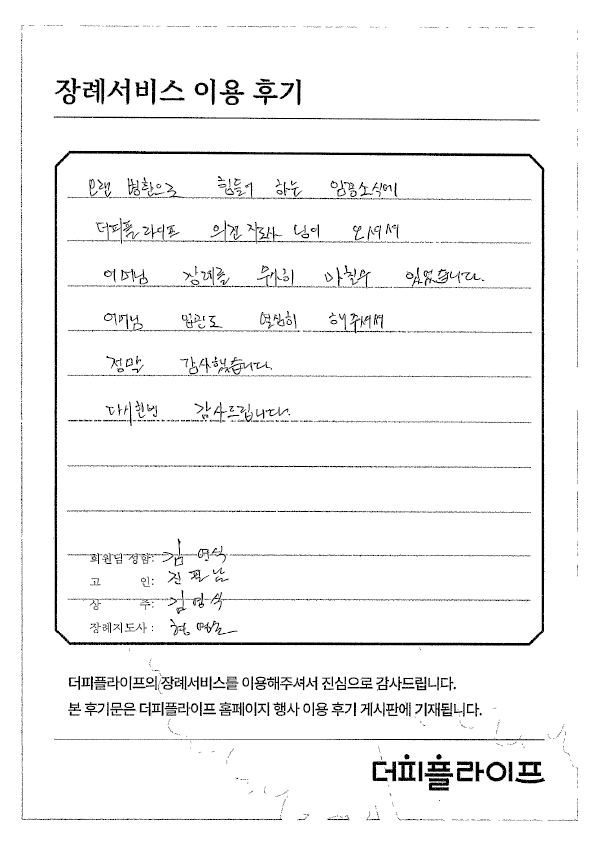 장례서비스 이용 후기
오랜 병환으로 힘들어 하는 임종소식에
더피플라이프 의전지도사 님이 오셔서
어머님 장례를 무사히 마칠수 있었습니다.
어머님 입관도 열심히 해주셔서
정말 감사했습니다.
다시한번 감사드립니다.
회원님 성함: 김 영식
고 인: 진 판 남
상 주: 김 영 식
장례지도사 : 현
더피플라이프의 장례서비스를 이용해주셔서 진심으로 감사드립니다.
본 후기문은 더피플라이프 홈페이지 행사 이용 후기 게시판에 기재됩니다.
더피플라이프